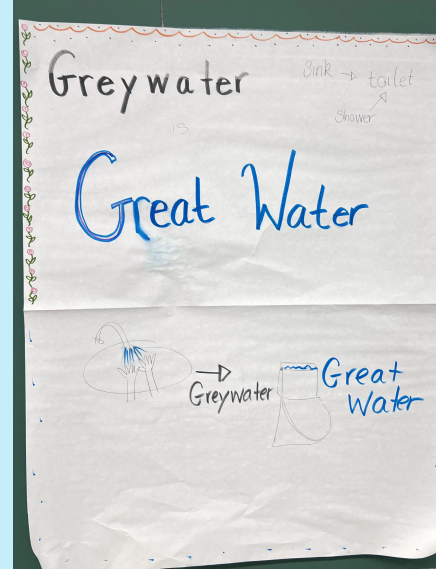 Greywater
Sink → toilet
Shower
is
Great Water
Greywater
Great
Water